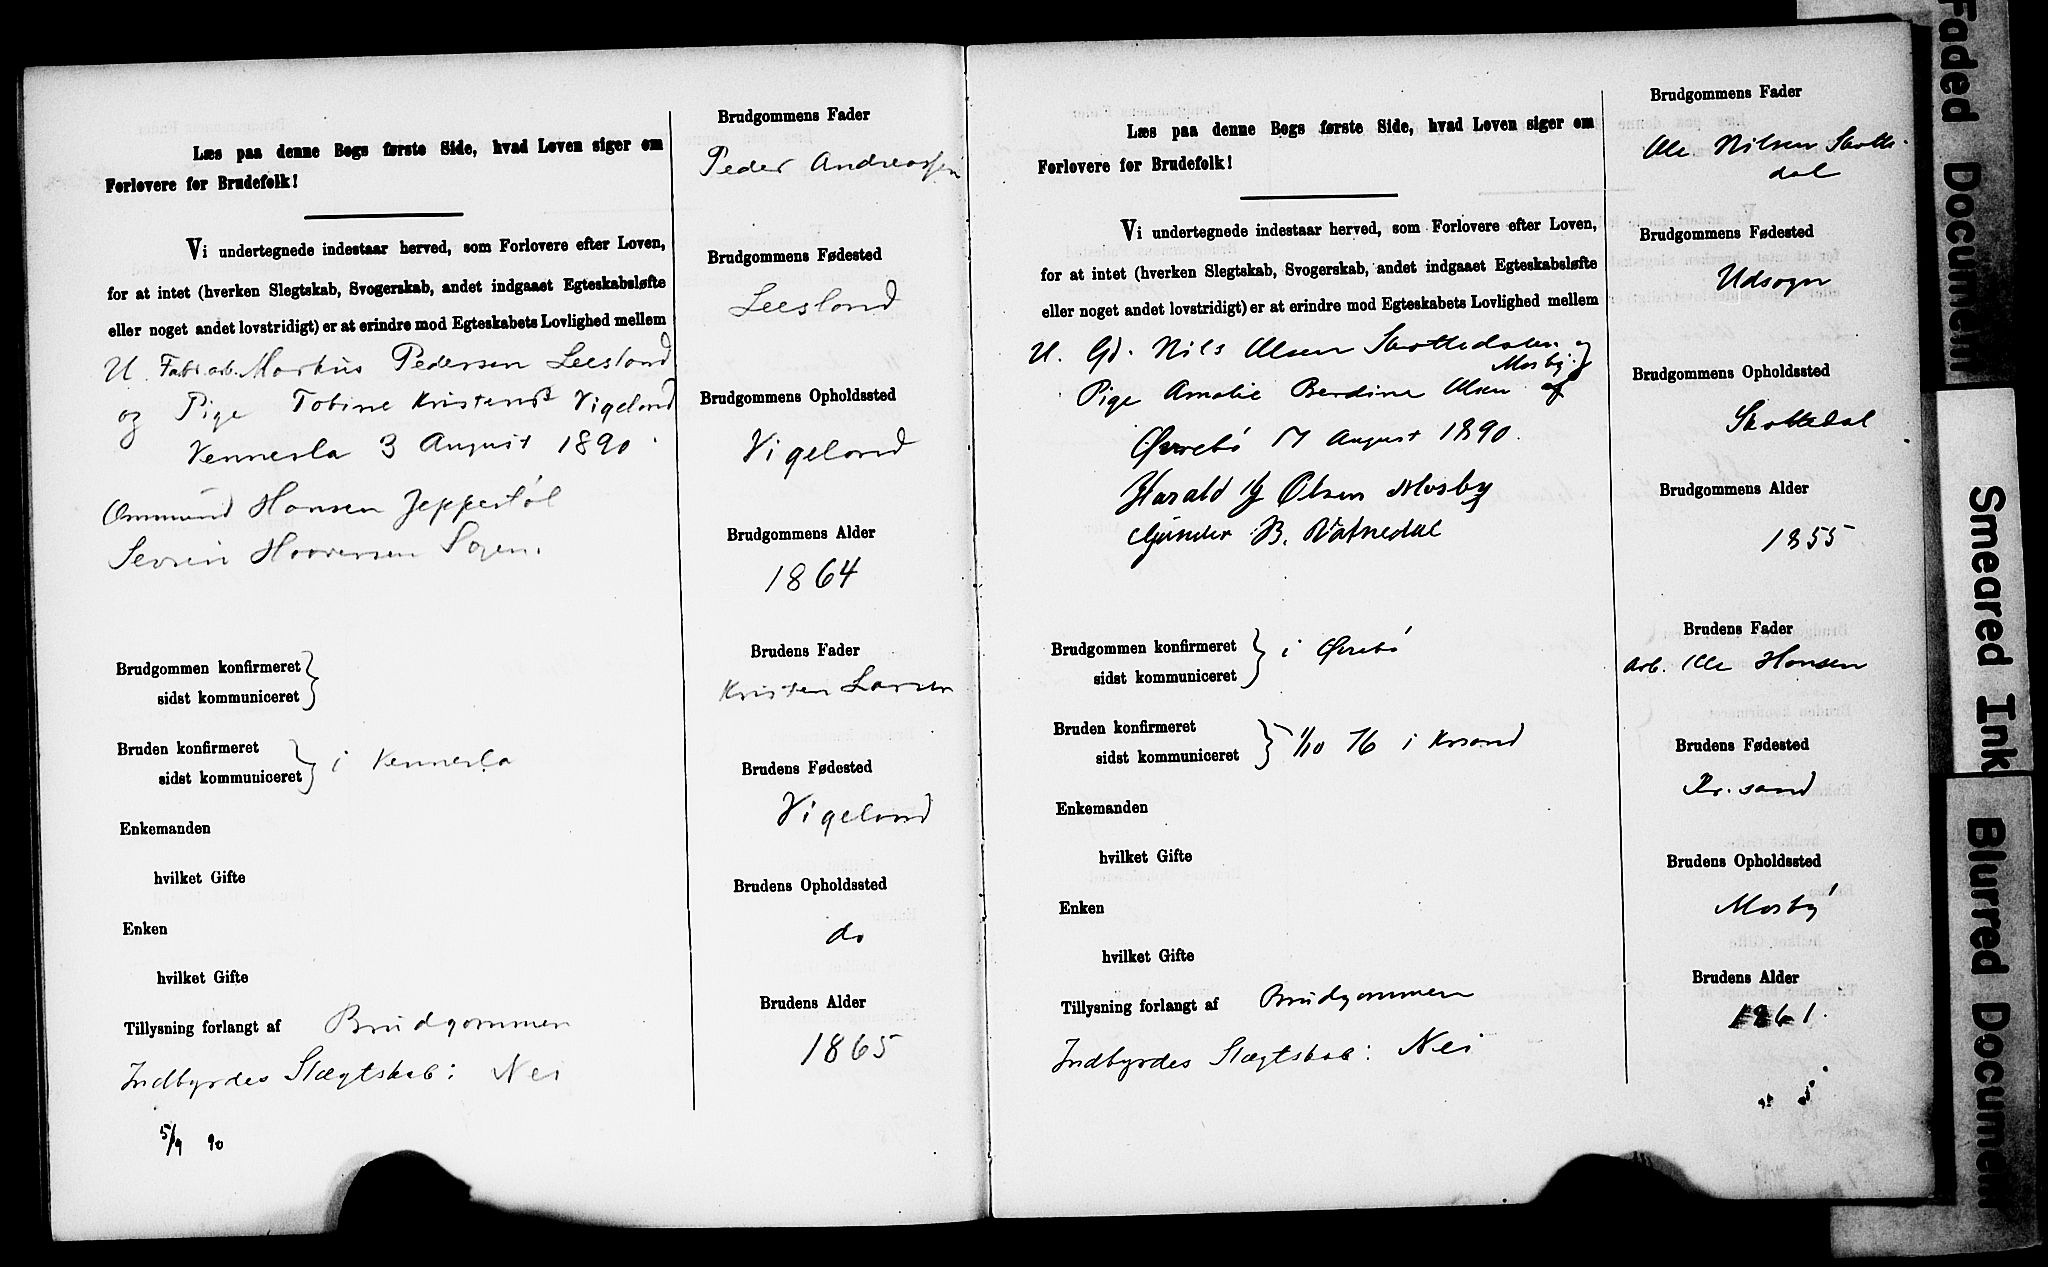 Læs paa denne Bogs første Side, hvad Loven siger om
Forlovere for Brudefolk!
Vi undertegnede indestaar herved, som Forlovere efter Loven,
for at intet (hverken Slegtskab, Svogerskab, andet indgaaet Egteskabsløfte
eller noget andet lovstridigt) er at erindre mod Egteskabets Lovlighed mellem
U. Fabr. arb. Markus Pedersen Leesland
og Pige Tobine Kristensd Vigeland
Vennesla 3 August 1890.
Ommund Hansen Jeppestøl
Sevrin Haaversen
Brudgommen konfirmeret
sidst kommuniceret
Bruden konfirmeret
sidst kommuniceret
i Vennesla
Enkemanden
hvilket Gifte
Enken
hvilket Gifte
Tillysning forlangt af Brudgommen
Indbyrdes Slægtskab: Nei
5/9 90
Brudgommens Fader
Peder Andreassen
Brudgommens Fødested
Leesland
Brudgommens Opholdssted
Vigeland
Brudgommens Alder
1864
Brudens Fader
Kristen Larsen
Brudens Fødested
Vigeland
Brudens Opholdssted
do
Brudens Alder
1865
Læs paa denne Bogs første Side, hvad Loven siger om
Forlovere for Brudefolk!
Vi undertegnede indestaar herved, som Forlovere efter Loven,
for at intet (hverken Slegtskab, Svogerskab, andet indgaaet Egteskabsløfte
eller noget andet lovstridigt) er at erindre mod Egteskabets Lovlighed mellem
U. Gd. Nils Olsen Skottedalen og
Pige Amalie Berdine Olsen af Mosby
Øvrebø 17 August 1890.
Harald Olsen Mosby
Gunder B. Vatnedal
Brudgommen konfirmeret
sidst kommuniceret
i Øvrebø
Bruden konfirmeret
sidst kommuniceret
1/10 76 i Krsand
Enkemanden
hvilket Gifte
Enken
hvilket Gifte
Tillysning forlangt af Brudgommen
Indbyrdes Slægtskab: Nei
Brudgommens Fader
Ole Nilsen Skotte-
dal
Brudgommens Fødested
Udsogn
Brudgommens Opholdssted
Skottedal
Brudgommens Alder
1855
Brudens Fader
Arb. Ole Hansen
Brudens Fødested
Kr.sand
Brudens Opholdssted
Mosby
Brudens Alder
1861.
Faded Document
Smeared Ink
Blurred Document